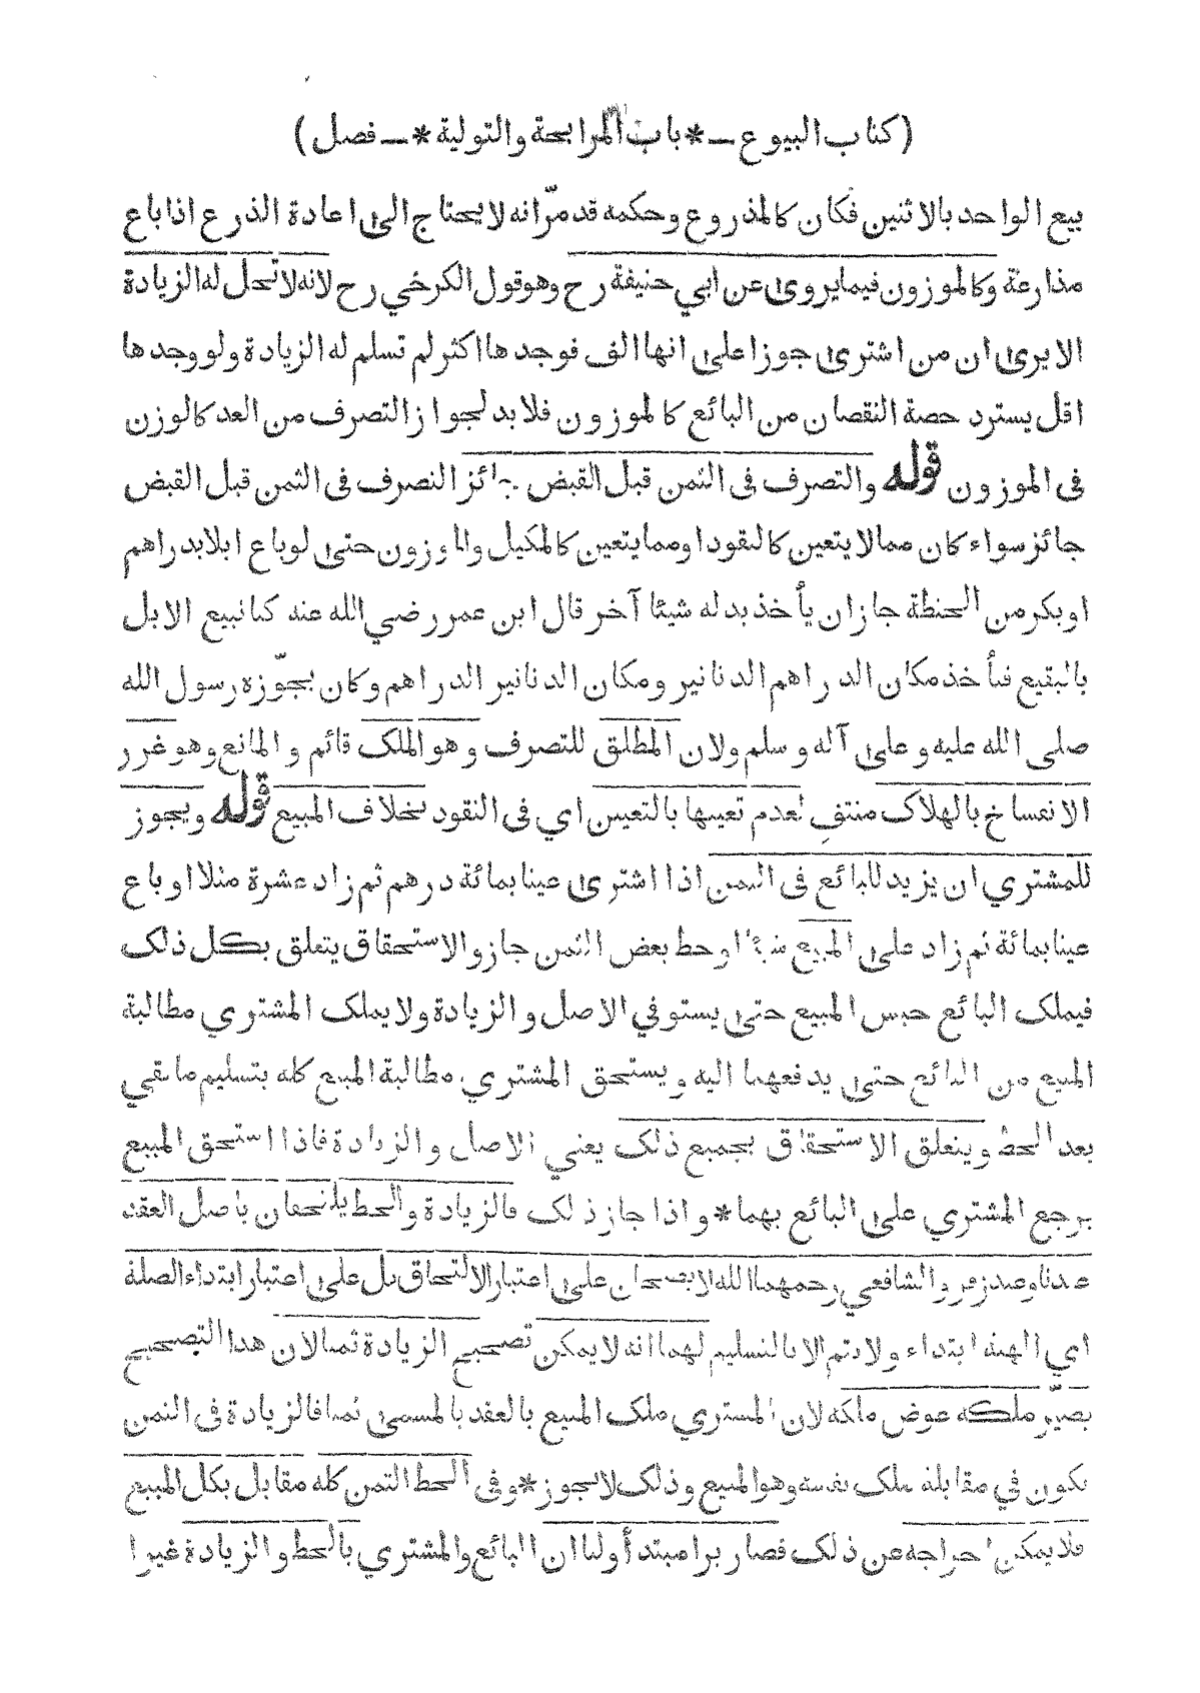 (كتاب البيوع — * باب المرابحة والتولية * — فصل)
بيع الواحد بالاثنين فكان كالمذروع وحكمه قد مرّ انه لا يحتاج الى اعادة الذرع اذا باع
مذارعة وكالموزون فيما يروى عن ابي حنيفة رح وهو قول الكرخي رح لانه لا تحل له الزيادة
الا يرى ان من اشترى جوزا على انها الف فوجدها اكثر لم تسلم له الزيادة ولو وجدها
اقل يسترد حصة النقصان من البائع كالموزون فلابد لجواز التصرف من العد كالوزن
فى الموزون قوله والتصرف فى الثمن قبل القبض جائز التصرف فى الثمن قبل القبض
جائز سواء كان مما لا يتعين كالنقود او مما يتعين كالمكيل والموزون حتى لو باع ابلا بدراهم
او بكر من الحنطة جاز ان يأخذ بدله شيئا آخر قال ابن عمر رضي الله عنه كنا نبيع الابل
بالبقيع فنأخذ مكان الدراهم الدنانير ومكان الدنانير الدراهم وكان يجوّزه رسول الله
صلى الله عليه وعلى آله وسلم ولان المطلق للتصرف وهو الملك قائم والمانع وهو غرر
الانفساخ بالهلاك منتفٍ لعدم تعينها بالتعيين اي فى النقود بخلاف المبيع قوله ويجوز
للمشتري ان يزيد للبائع فى الثمن اذا اشترى عينا بمائة درهم ثم زاد عشرة مثلا او باع
عينا بمائة ثم زاد على المبيع شيئا او حط بعض الثمن جاز والاستحقاق يتعلق بكل ذلك
فيملك البائع حبس المبيع حتى يستوفي الاصل والزيادة ولا يملك المشتري مطالبة
المبيع من البائع حتى يدفعهما اليه ويستحق المشتري مطالبة المبيع كله بتسليم ما بقي
بعد الحط ويتعلق الاستحقاق بجميع ذلك يعني الاصل والزيادة فاذا استحق المبيع
يرجع المشتري على البائع بهما * واذا جاز ذلك فالزيادة والحط يلتحقان باصل العقد
عندنا وعند زفر والشافعي رحمهما الله لا يصحان على اعتبار الالتحاق بل على اعتبار ابتداء الصلة
اي الهبة ابتداء ولا يتم الا بالتسليم لهما انه لا يمكن تصحيح الزيادة ثمنا لان هذا التصحيح
يصيّر ملكه عوض ملكه لان المشتري ملك المبيع بالعقد بالمسمى ثمنا فالزيادة فى الثمن
يكون في مقابلة ملك نفسه وهو المبيع وذلك لا يجوز * وفى الحط الثمن كله مقابل بكل المبيع
فلا يمكن اخراجه عن ذلك فصار برا مبتدأ ولنا ان البائع والمشتري بالحط والزيادة غيرا